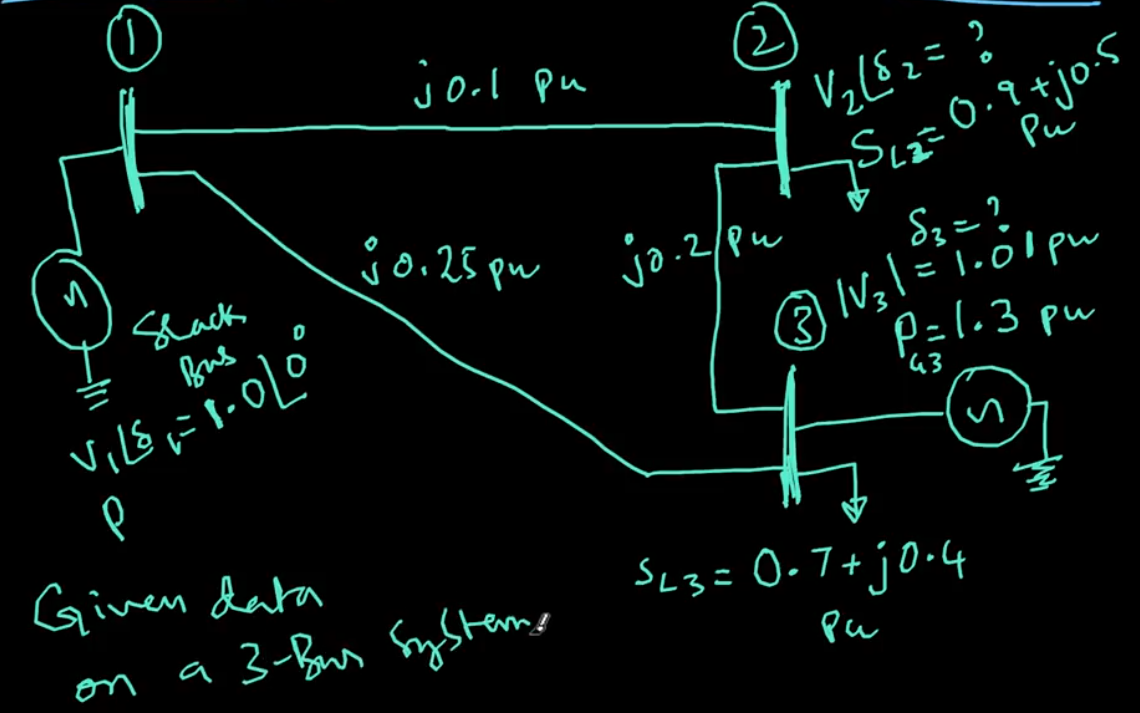 ①
②
j0.1 pu
V₂∠δ₂ = ?
S_L2 = 0.9 + j0.5
pu
j0.25 pu
j0.2 pu
δ₃ = ?
③
|V₃| = 1.01 pu
P_G3 = 1.3 pu
Slack
Bus
V₁∠δ₁ = 1.0∠0°
P
S_L3 = 0.7 + j0.4
pu
Given data
on a 3-Bus system